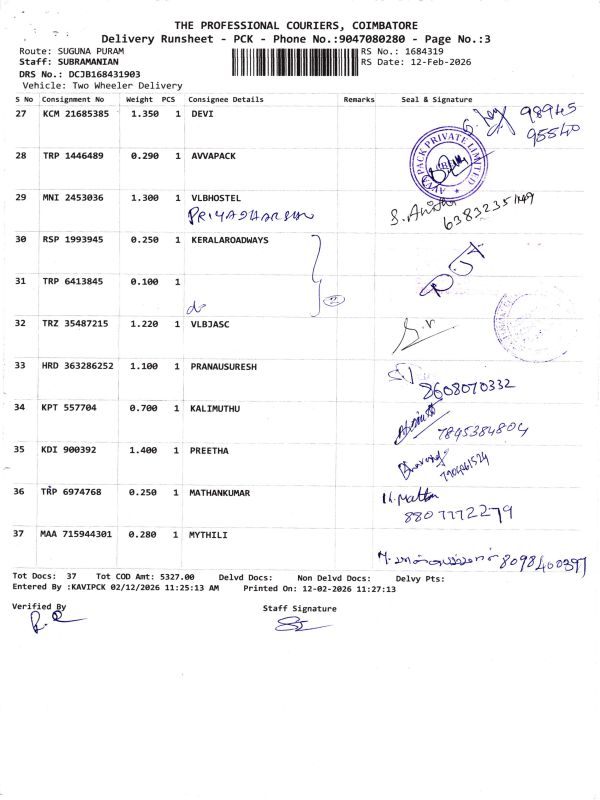 THE PROFESSIONAL COURIERS, COIMBATORE
Delivery Runsheet - PCK - Phone No.:9047080280 - Page No.:3
Route: SUGUNA PURAM RS No.: 1684319
Staff: SUBRAMANIAN RS Date: 12-Feb-2026
DRS No.: DCJB168431903
Vehicle: Two Wheeler Delivery
S No Consignment No Weight PCS Consignee Details Remarks Seal & Signature
27 KCM 21685385 1.350 1 DEVI 98945
95540
28 TRP 1446489 0.290 1 AVVAPACK
PACK PRIVATE LIMITED
29 MNI 2453036 1.300 1 VLBHOSTEL
PRIYADHARSHN
30 RSP 1993945 0.250 1 KERALAROADWAYS
31 TRP 6413845 0.100 1
do
32 TRZ 35487215 1.220 1 VLBJASC S.V
33 HRD 363286252 1.100 1 PRANAUSURESH
8608070332
34 KPT 557704 0.700 1 KALIMUTHU
7845384804
35 KDI 900392 1.400 1 PREETHA
36 TRP 6974768 0.250 1 MATHANKUMAR
8807772279
37 MAA 715944301 0.280 1 MYTHILI
8098400397
Tot Docs: 37 Tot COD Amt: 5327.00 Delvd Docs: Non Delvd Docs: Delvy Pts:
Entered By :KAVIPCK 02/12/2026 11:25:13 AM Printed On: 12-02-2026 11:27:13
Verified By Staff Signature